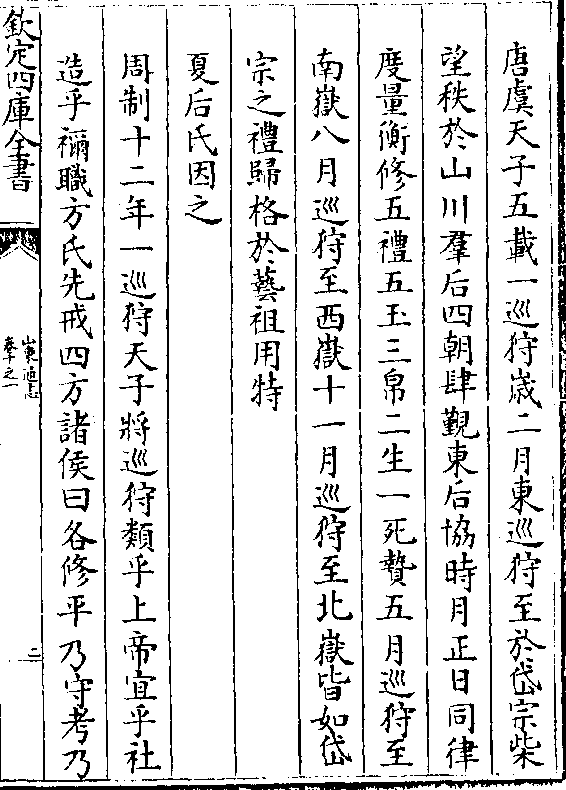 唐虞天子五載一巡狩嵗二月東巡狩至於岱宗柴
望秩於山川羣后四朝肆覲東后協時月正日同律
度量衡修五禮五玉三帛二生一死贄五月巡狩至
南嶽八月巡狩至西嶽十一月巡狩至北嶽皆如岱
宗之禮歸格於藝祖用特
夏后氏因之
周制十二年一巡狩天子將巡狩類乎上帝宜乎社
造乎禰職方氏先戒四方諸侯曰各修平乃守考乃
欽定四庫全書
山東通志
卷十之一
二